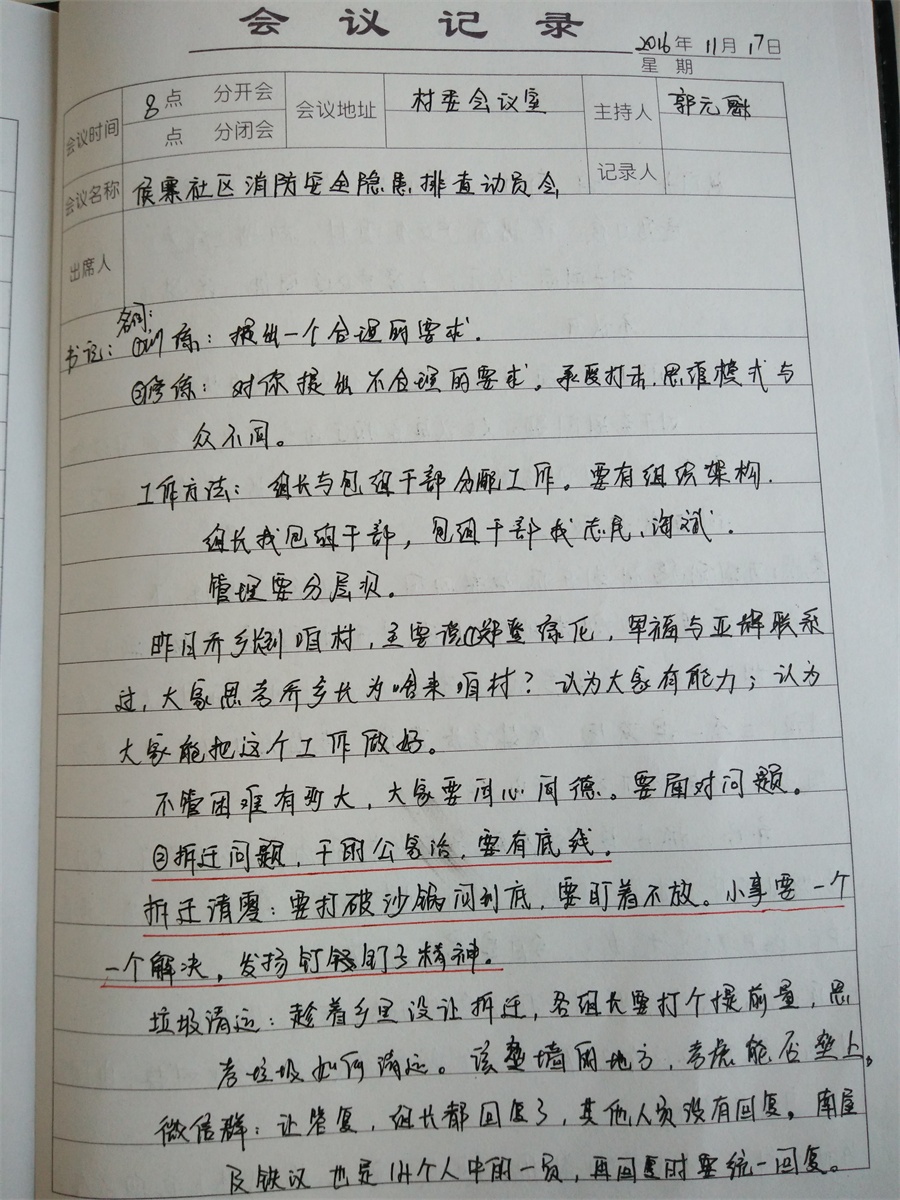 会议记录
2016年11月17日
星期
会议时间 8点 分开会 会议地址 村委会议室 主持人 郭元
点 分闭会
会议名称 侯寨社区消防安全隐患排查动员会 记录人
出席人
名词:
书记: ①训练: 提出一个合理的要求.
②修练: 对你提出不合理的要求。承受打击.思维模式与
众不同。
工作方法: 组长与包组干部分配工作。要有组织架构.
组长找包组干部, 包组干部找志民、海斌.
管理要分层次。
昨日乔乡长到咱村, 主要说①郑登绿化, 军福与亚辉联系
过, 大家思考乔乡长为啥来咱村? 认为大家有能力; 认为
大家能把这个工作做好。
不管困难有多大, 大家要同心同德。要面对问题。
②拆迁问题, 干部公家治, 要有底线。
拆迁清零: 要打破沙锅问到底, 要盯着不放。小事要一个
一个解决, 发扬钉钉子精神。
垃圾清运: 趁着乡里没让拆迁, 各组长要打个提前量, 思
考垃圾如何清运。该垒墙的地方, 考虑能否垒上。
微信群: 让答复, 组长都回复了, 其他人员没有回复。南屋
及 议也是14个人中的一员, 再回复时要统一回复。